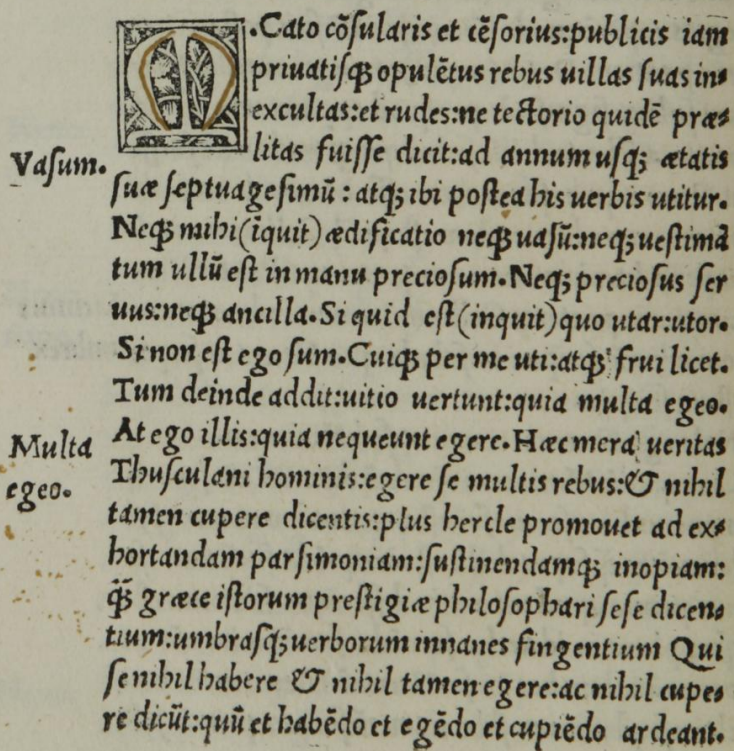 M.Cato cōſularis et cēſorius:publicis iam
priuatiſqꝫ opulētus rebus uillas ſuas in⸗
excultas:et rudes:ne tectorio quidē præ⸗
litas fuiſſe dicit:ad annum uſqꝫ ætatis
Vaſum.
ſuæ ſeptuageſimū : atqꝫ ibi poſtea his uerbis utitur.
Neqꝫ mihi (īquit) ædificatio neqꝫ uaſū:neqꝫ ueſtimā
tum ullū eſt in manu precioſum. Neqꝫ precioſus ſer
uus:neqꝫ ancilla. Si quid eſt (inquit) quo utar:utor.
Si non eſt ego ſum. Cuiqꝫ per me uti:atqꝫ frui licet.
Tum deinde addit:uitio uertunt:quia multa egeo.
Multa
egeo.
At ego illis:quia nequeunt egere. Hæc mera ueritas
Thuſculani hominis:egere ſe multis rebus:& nihil
tamen cupere dicentis:plus hercle promouet ad ex⸗
hortandam parſimoniam:ſuſtinendamqꝫ inopiam:
qꝫ̃ græce iſtorum preſtigiæ philoſophari ſeſe dicen⸗
tium:umbraſqꝫ uerborum innanes fingentium Qui
ſe nihil habere & nihil tamen egere:ac nihil cupe⸗
re dicūt:quū et habēdo et egēdo et cupiēdo ardeant.